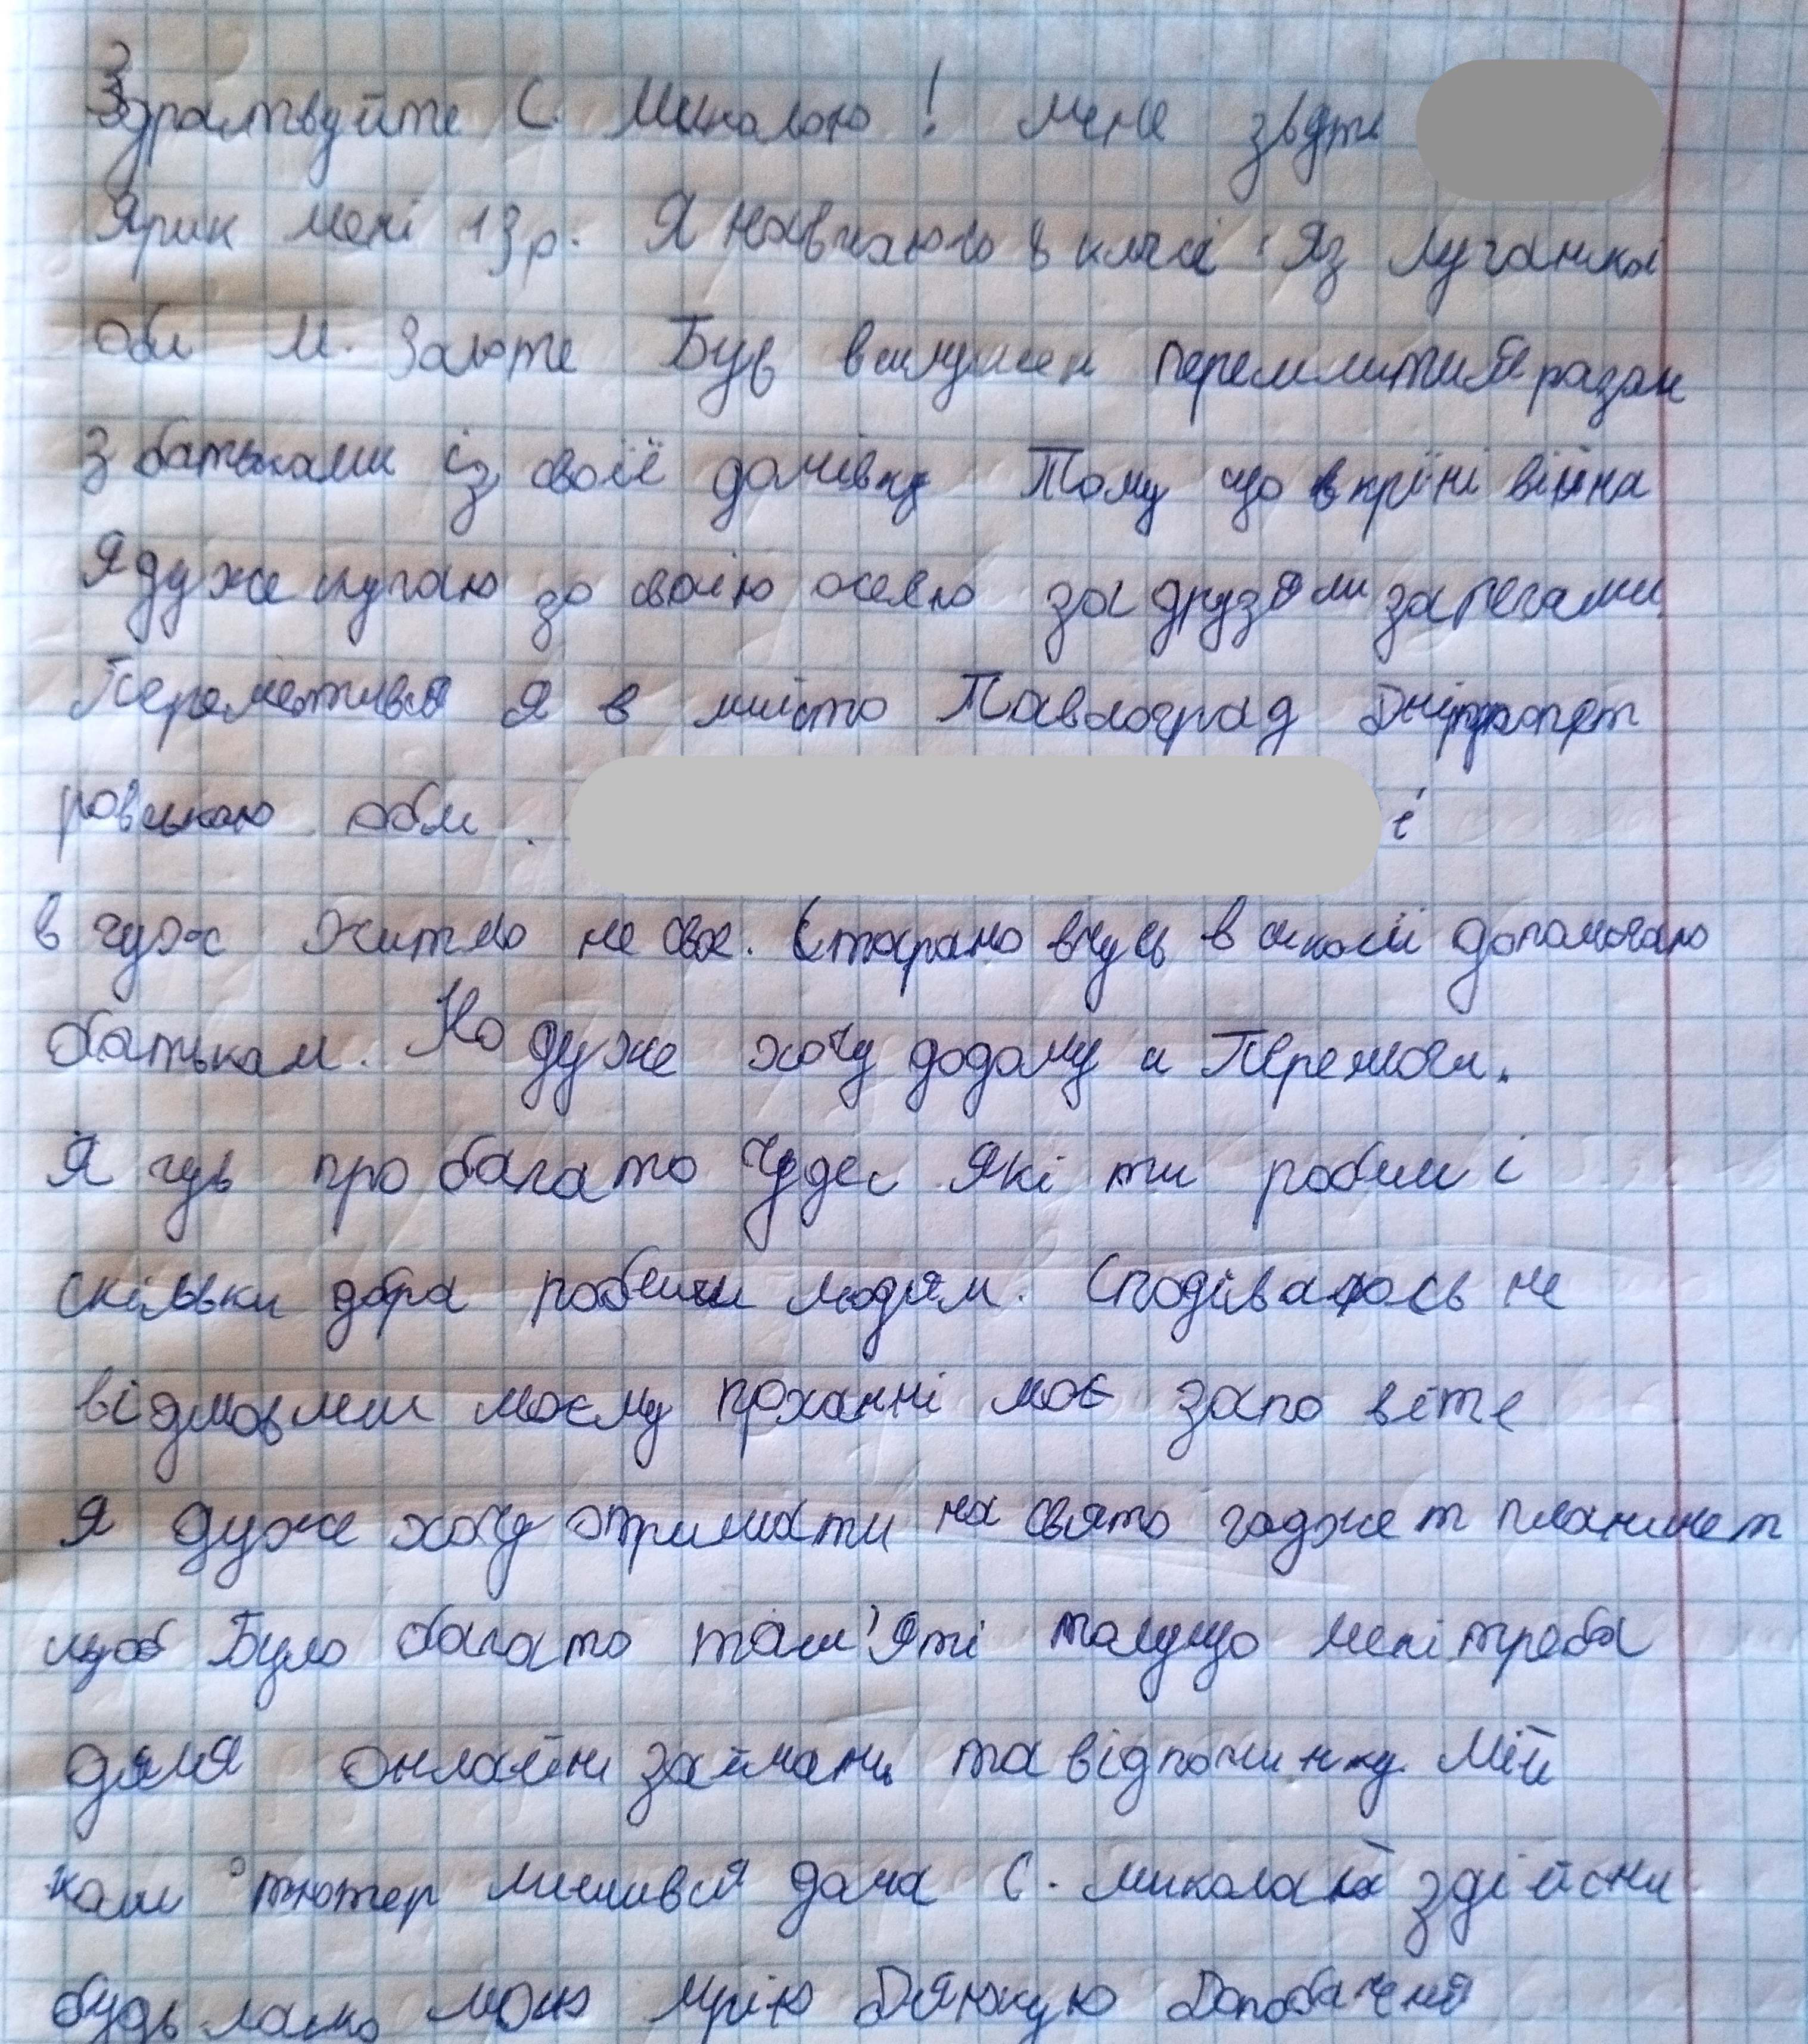 Здраствуйте С. Миколаю! мене звать
Ярик мені 13 р. Я навчаюсь 8 класі Я з Луганска
обл м. Золоте Був вимушен переміститися разом
з батьками із своїї домівки Тому що в кріїні війна
Я дуже скучаю за своїю оселю за друзями за речами
Перемістився я в мiсто Павлоград Дніпропет
ровською обл. і
в чуже житло не своє. Старано вчусь в школі допомогаю
батькам. Но дуже хочу додому и Перемоги.
Я чув про багато Чудес Які ти робиш і
скільки добра робиш людям. Сподіваюсь не
відмовиш моєму проханні моє запо віте
Я дуже хочу отримати на свято гаджет планшет
щоб Було багато пам'яті тому що мені треба
для онлайн займань та відпочинку. Мій
ком пютер лишився дома С. миколай здійсни
будь ласка мою мрію Дякую До побаченя